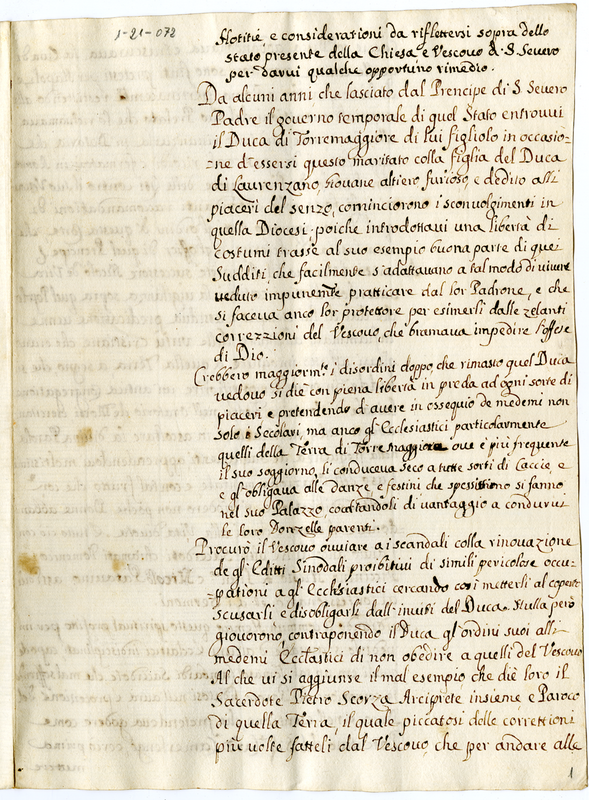 1-21-072
Notitie, e considerationi da riflettersi sopra dello
stato presente della Chiesa, e Vescovo di S. Severo
per darvi qualche opportuno rimedio.
Da alcuni anni che lasciato dal Prencipe di S. Severo
Padre il governo temporale di quel Stato entrovvi
il Duca di Torremaggiore di lui figliolo in occasio-
-ne d'essersi questo maritato colla figlia del Duca
di Laurenzano, Giovane altiero, furioso, e dedito alli
piaceri del senzo, cominciorono i sconvolgimenti in
quella Diocesi: poiche introdottavi una libertà di
costumi trasse al suo esempio buona parte di quei
Sudditi, che facilmente s'adattavano a tal modo di vivere
veduto impunemte pratticare dal lor Padrone, e che
si faceva anco lor protettore per esimerli dalle zelanti
correzzioni del Vescovo, che bramava impedire l'offese
di Dio.
Crebbero maggiormte i disordini doppo, che rimasto quel Duca
vedovo si diè con piena libertà in preda ad ogni sorte di
piaceri e pretendendo d'avere in ossequio de medemi non
solo i Secolari, ma anco gl'Ecclesiastici particolarmente
quelli della Terra di Torremaggiore ove è più frequente
il suo soggiorno, li conduceva seco a tutte sorti di Caccie, e
e gl'obligava alle danze, e festini che spessissimo si fanno
nel suo Palazzo, coattandoli di vantaggio a condurvi
le loro Donzelle parenti.
Procurò il Vescovo ovviare a i scandali colla rinovazione
de gl'Editti Sinodali proibitivi di simili pericolose occu-
-pationi a gl'Ecclesiastici cercando così metterli al coperto
scusarli e disobligarli dall'inviti del Duca. Nulla però
giovorono, contraponendo il Duca gl'ordini suoi alli
medemi Ecclastici di non obedire a quelli del Vescovo
Al che vi si aggiunse il mal esempio che diè loro il
Sacerdote Pietro Scorza Arciprete insieme, e Paroco
di quella Terra, il quale piccatosi delle correttioni
più volte fatteli dal Vescovo, che per andare alle
1